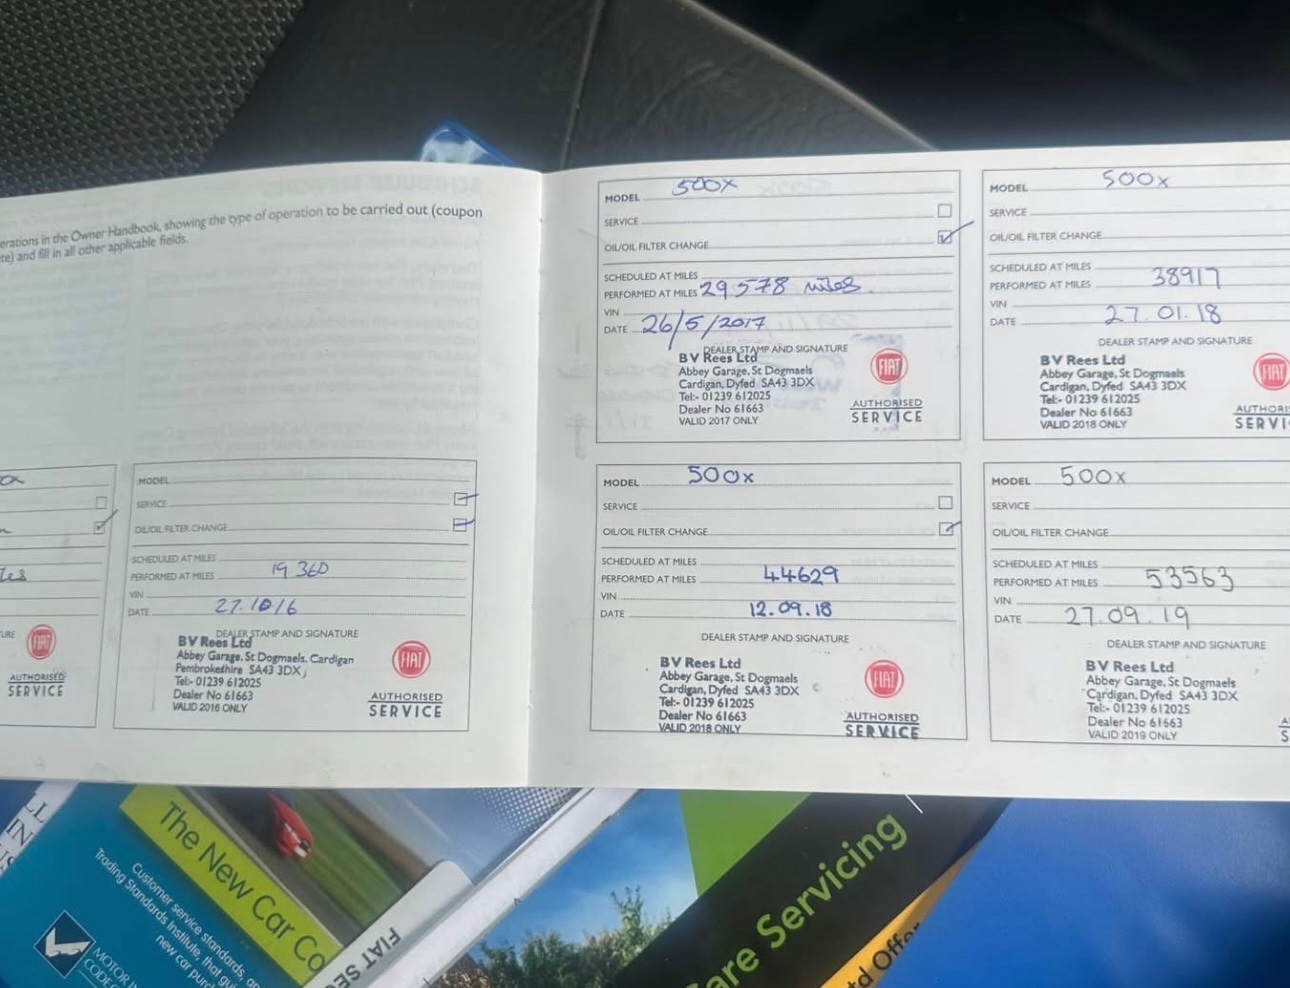 erations in the Owner Handbook, showing the type of operation to be carried out (coupon
te) and fill in all other applicable fields.
FIAT
AUTHORISED
SERVICE
MODEL
SERVICE
OIL/OIL FILTER CHANGE
SCHEDULED AT MILES
PERFORMED AT MILES 19 360
VIN
DATE 27.10/6
DEALER STAMP AND SIGNATURE
BV Rees Ltd
Abbey Garage, St Dogmaels, Cardigan
Pembrokedhire SA43 3DX
Tel:- 01239 612025
Dealer No 61663
VALID 2016 ONLY
FIAT
AUTHORISED
SERVICE
MODEL 500X
SERVICE
OIL/OIL FILTER CHANGE
SCHEDULED AT MILES
PERFORMED AT MILES 29578 miles
VIN
DATE 26/5/2017
DEALER STAMP AND SIGNATURE
BV Rees Ltd
Abbey Garage, St Dogmaels
Cardigan, Dyfed SA43 3DX
Tel:- 01239 612025
Dealer No 61663
VALID 2017 ONLY
FIAT
AUTHORISED
SERVICE
MODEL 500x
SERVICE
OIL/OIL FILTER CHANGE
SCHEDULED AT MILES
PERFORMED AT MILES 38917
VIN
DATE 27.01.18
DEALER STAMP AND SIGNATURE
BV Rees Ltd
Abbey Garage, St Dogmaels
Cardigan, Dyfed SA43 3DX
Tel:- 01239 612025
Dealer No 61663
VALID 2018 ONLY
FIAT
AUTHORIS
SERVI
MODEL 500x
SERVICE
OIL/OIL FILTER CHANGE
SCHEDULED AT MILES
PERFORMED AT MILES 44629
VIN
DATE 12.09.18
DEALER STAMP AND SIGNATURE
BV Rees Ltd
Abbey Garage, St Dogmaels
Cardigan, Dyfed SA43 3DX
Tel:- 01239 612025
Dealer No 61663
VALID 2018 ONLY
FIAT
AUTHORISED
SERVICE
MODEL 500x
SERVICE
OIL/OIL FILTER CHANGE
SCHEDULED AT MILES
PERFORMED AT MILES 53563
VIN
DATE 27.09.19
DEALER STAMP AND SIGNATURE
BV Rees Ltd
Abbey Garage, St Dogmaels
Cardigan, Dyfed SA43 3DX
Tel:- 01239 612025
Dealer No 61663
VALID 2019 ONLY
The New Car Co
Customer service standards,
Trading Standards Institute, that gui
new car purc
MOTOR IN
CODES
FIAT SE
are Servicing
td Offer